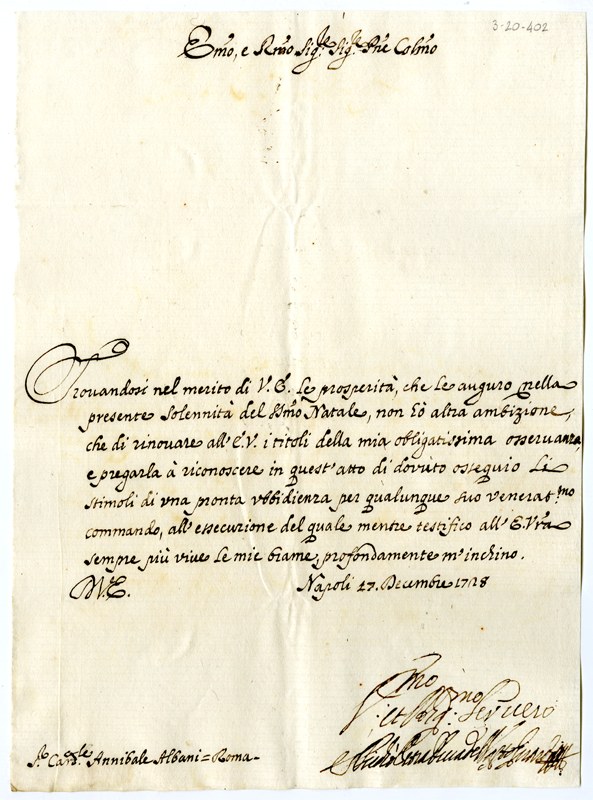 3-20-402
Emo, e Rmo Sig.r Sig.r Pne Colmo
Trouandosi nel merito di V. E. le prosperità, che le auguro nella
presente solennità del Smo Natale, non hò altra ambizione,
che di rinouare all'E.V. i titoli della mia obligatissima osseruanza,
e pregarla à riconoscere in quest'atto di douuto ossequio li
stimoli di vna pronta vbbidienza per qualunque suo venerat.mo
commando, all'essecuzione del quale mentre testifico all'E.Vrã
sempre più viue le mie brame, profondamente m'inchino.
Napoli 17. Decembre 1718
Seruero
S.r Card.le Annibale Albani = Roma -